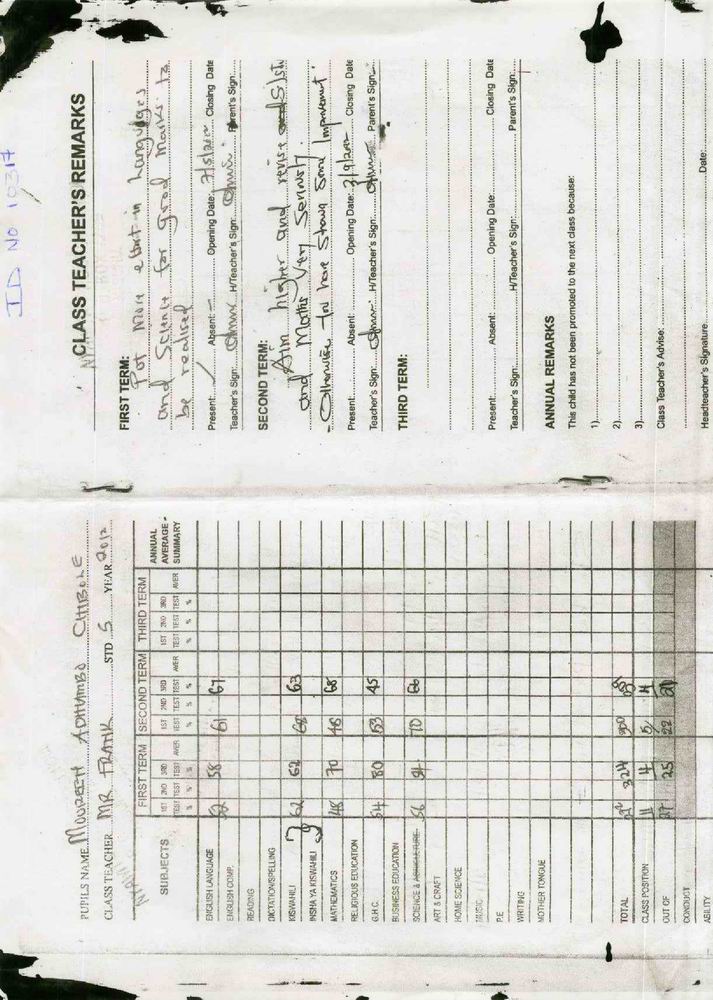 ID NO 10317
CLASS TEACHER'S REMARKS
FIRST TERM:
Put more effort in Languages
and Science for good marks to
be realised
Present: Absent: Opening Date: 7/5/2012 Closing Date
Teacher's Sign: H/Teacher's Sign: Parent's Sign:
SECOND TERM:
Aim higher and revise
and Maths Very Seriously.
- Otherwise have Shown Some Improvement
Present: Absent: Opening Date: 3/9/2012 Closing Date
Teacher's Sign: H/Teacher's Sign: Parent's Sign:
THIRD TERM:
Present: Absent: Opening Date: Closing Date
Teacher's Sign: H/Teacher's Sign: Parent's Sign:
ANNUAL REMARKS
This child has not been promoted to the next class because:
1)
2)
3)
Class Teacher's Advise:
Headteacher's Signature Date:
PUPILS NAME ADHIAMBO
CLASS TEACHER MR FRANK STD 5 YEAR 2012
SUBJECTS FIRST TERM SECOND TERM THIRD TERM ANNUAL AVERAGE - SUMMARY
1ST TEST % 2ND TEST % 3RD TEST % AVER 1ST TEST % 2ND TEST % 3RD TEST % AVER 1ST TEST % 2ND TEST % 3RD TEST % AVER
ENGLISH LANGUAGE 58 61 67
ENGLISH COMP.
READING
DICTATION/SPELLING
KISWAHILI 62 62 68 63
INSHA YA KISWAHILI
MATHEMATICS 48 70 48 68
RELIGIOUS EDUCATION
G.H.C. 54 80 53 45
BUSINESS EDUCATION
SCIENCE & AGRICULTURE 56 54 70 66
ART & CRAFT
HOME SCIENCE
MUSIC
P.E
WRITING
MOTHER TONGUE
TOTAL 324 300
CLASS POSITION 11 4 5 4
OUT OF 27 25 22 21
CONDUCT
ABILITY